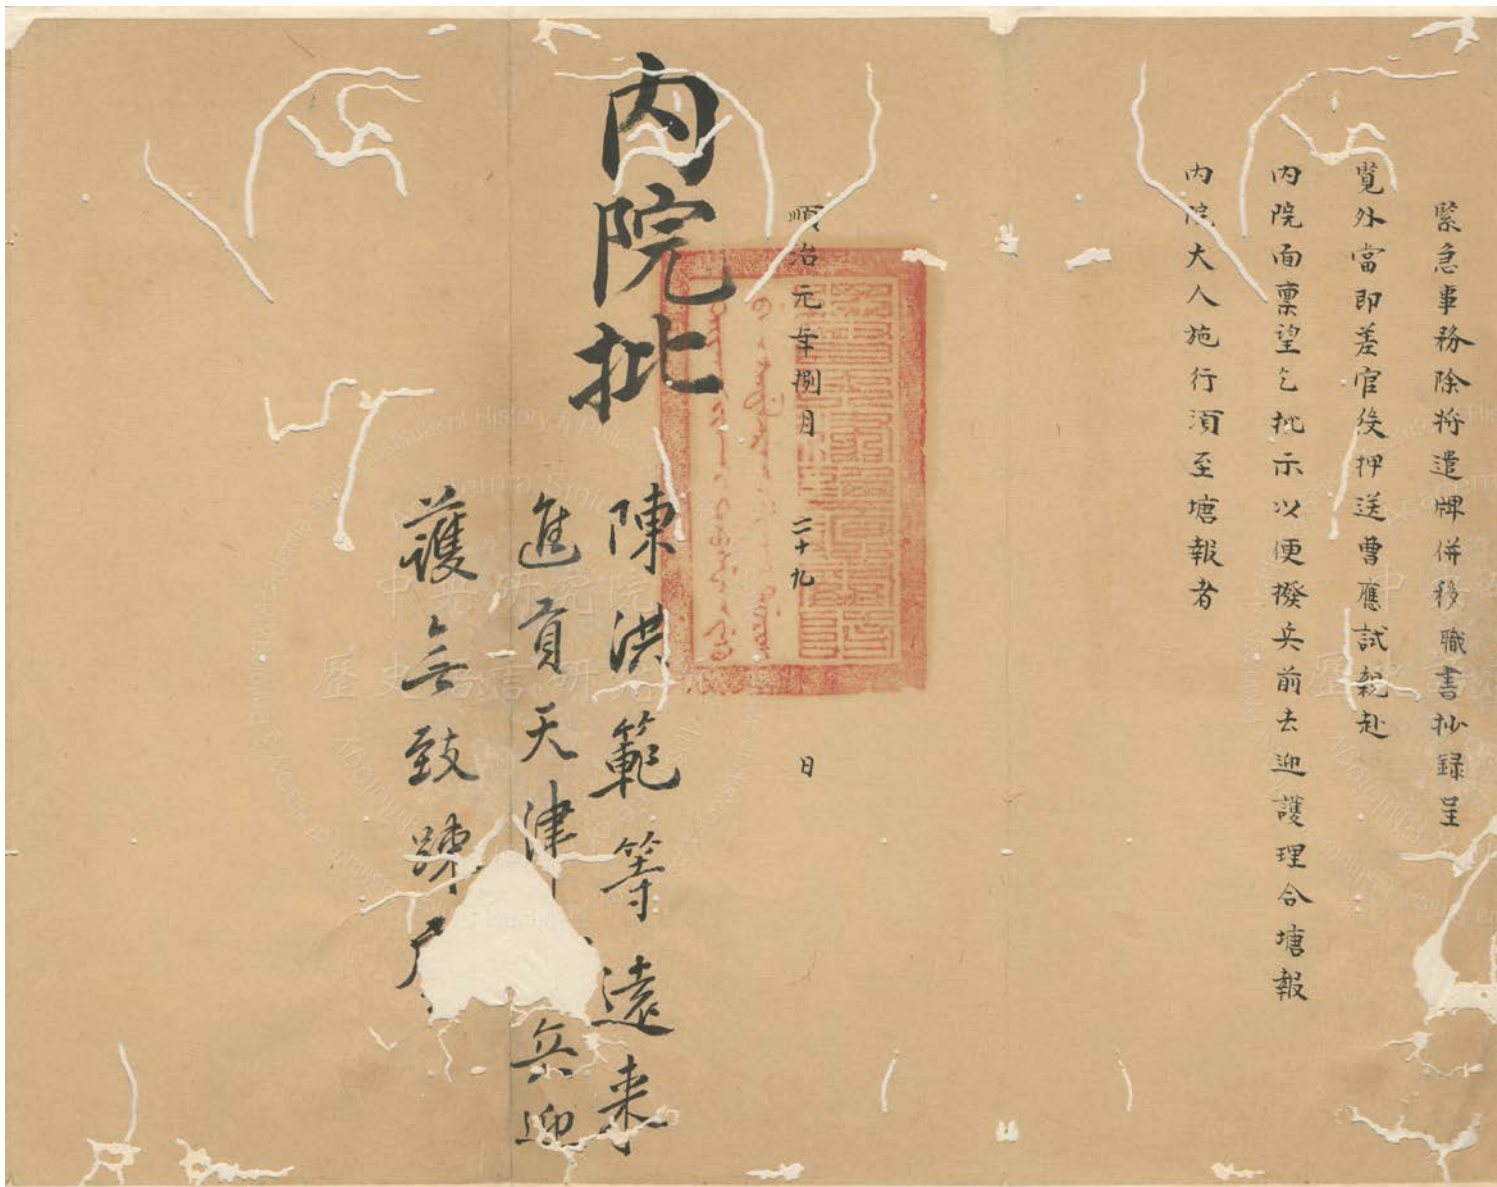 緊急事務除將遣牌併移職書抄錄呈
覽外當即差官役押送曹應試親赴
內院面稟望乞批示以便撥兵前去迎護理合塘報
內院大人施行須至塘報者
順治元年捌月二十九日
內院批
陳洪範等遠來
進貢天津兵迎
護無致踈